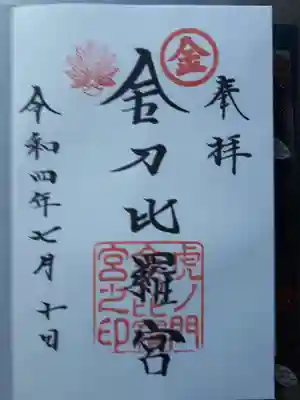 奉拝
金
金刀比羅宮
虎ノ門
金比羅
宮之印
令和四年七月十日